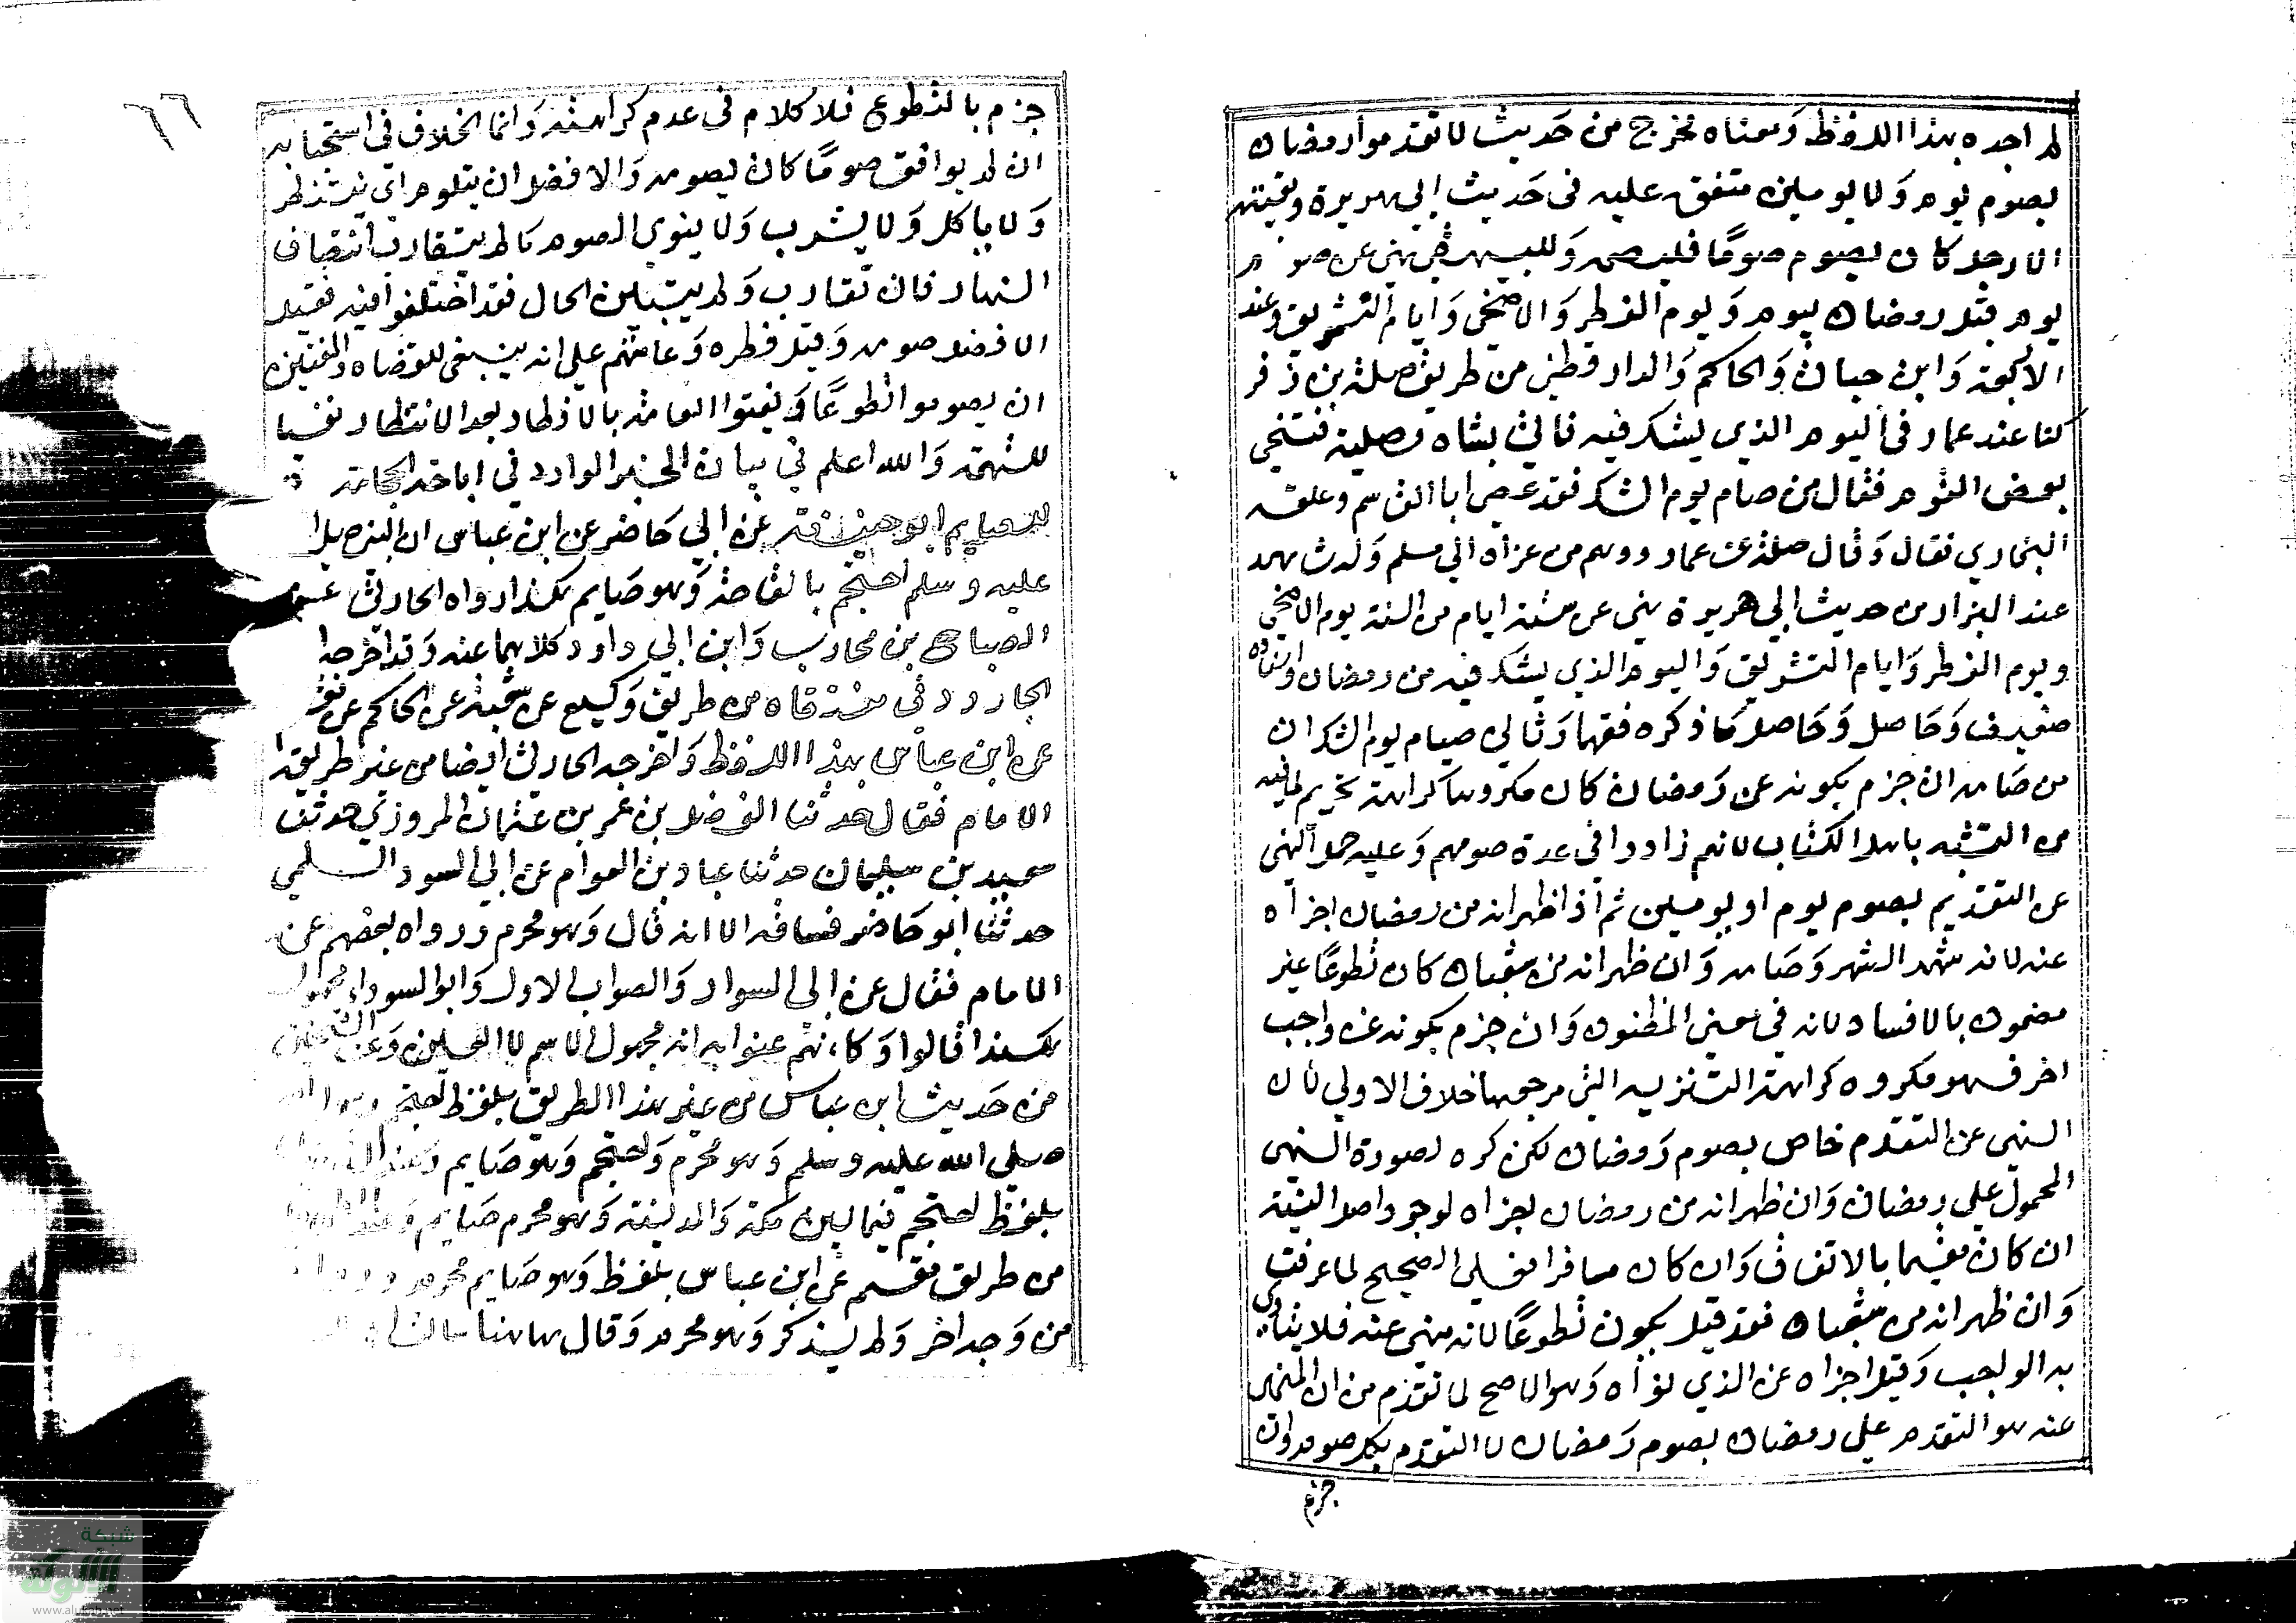 لم اجده بهذا اللفظ وَمعناه يخرج من حَديث لا تقدموا رمضان
بصوم يوم وَلا يومين متفق عليه في حَديث ابي هريرة وبقيته
الا رجل كان يصوم صومًا فليصمه وَللبيهقي نهى عن صوم
يوم قبل رمضان بيوم وَيوم الفطر وَالاضحى وَايام التشريق وعند
الاربعة وَابن حبان وَالحاكم وَالدارقطني من طريق صلة بن زفر
كنا عند عمار في اليوم الذي يشك فيه فاتي بشاة مصلية فتنحى
بعض القوم فقال من صام يوم الشك فقد عصى ابا القاسم وعلقه
البخاري فقال وَقال صلة عن عمار ووهم من عزاه الى مسلم وَله شاهد
عند البزار من حديث ابي هريرة نهى عن ستة ايام من السنة يوم الاضحى
ويوم الفطر وَايام التشريق وَاليوم الذي يشك فيه من رمضان واسناده
ضعيف وَحَاصل مَا ذكره فقهاؤنا في صيام يوم الشك ان
من صَامه ان جزم بكونه عن رَمضان كان مكروها كراهة تحريم لما فيه
من التشبه باهل الكتاب لانهم زادوا في عدة صومهم وَعليه حمل النهي
عن التقديم بصوم يوم او يومين ثم اذا ظهر انه من رمضان اجزأه
عنه لانه شهد الشهر وَصَامه وَان ظهر انه من شعبان كان تطوعًا غير
مضمون بالافساد لانه في معنى المظنون وَان جزم بكونه عن واجب
اخر فهو مكروه كراهة التنزيه التي مرجعها خلاف الاولى لان
النهي عن التقدم خاص بصوم رَمضان لكن كره لصورة النهي
المحمول على رمضان وَان ظهر انه من رمضان يجزاه لوجود اصل النية
ان كان مقيما بالاتفاق وَان كان مسافرا فعلى الصحيح لما عرفت
وَان ظهر انه من شعبان فقد قيل يكون تطوعًا لانه منهي عنه فلا يتأدى
به الواجب وَقيل اجزاه عن الذي نواه وَهو الاصح لما تقدم من ان المنهى
عنه هو التقدم على رمضان بصوم رَمضان لا التقدم بكل صوم وان
جزم
٦٦
جزم بالتطوع فلا كلام في عدم كراهته وَانما الخلاف في استحبابه
ان لم يوافق صومًا كان يصومه وَالافضل ان يتلوم اي ينتظر
وَلا ياكل وَلا يشرب وَلا ينوي الصوم مَا لم يتقارب انتصاف
النهار فان تقارب وَلم يتبين الحال فقد اختلفوا فيه فقيل
الافضل صومه وَقيل فطره وَعامتهم على انه ينبغي للقضاه والمفتين
ان يصوموا تطوعًا وَيفتوا العامة بالافطار بعد الانتظار نفيا
للتهمة وَالله اعلم في بيان الخبر الوارد في اباحة الحجامة
للصايم ابو حنيفة عن ابي حَاضر عن ابن عباس ان النبي صلى
عليه وسلم احتجم بالقاحة وَهو صَايم هكذا رواه الحارثي عن
الصباح بن محارب وَابن ابي داود كلاهما عنه وَقد اخرجه
الجارود في منتقاه من طريق وَكيع عن شعبة عن الحاكم عن مقسم
عن ابن عباس بهذا اللفظ وَاخرجه الحارثي ايضا من غير طريق
الامام فقال حدثنا الفضل بن عمر بن عثمان المروزي حدثنا
سعيد بن سليمان حدثنا عباد بن العوام عن ابي السود السلمي
حدثنا ابو حَاضر فساقه الا انه قال وَهو محرم ورواه بعضهم عن
الامام فقال عن ابي السوار وَالصواب الاول وَابو السوداء مجهول
هكذا قالوا وَكانهم عنوا به انه مجهول الاسم لا العين وَعند الشيخين
من حَديث ابن عباس من غير هذا الطريق بلفظ احتجم رسول الله
صلى الله عليه وسلم وَهو محرم وَاحتجم وَهو صَايم وَعند
بلفظ احتجم فيما بين مكة وَالمدينة وَهو محرم صَايم وَعند
من طريق مقسم عن ابن عباس بلفظ وَهو صَايم محرم
من وَجه اخر وَلم يذكر وَهو محرم وَقال هاهنا
شبكة
الألوكة
www.alukah.net